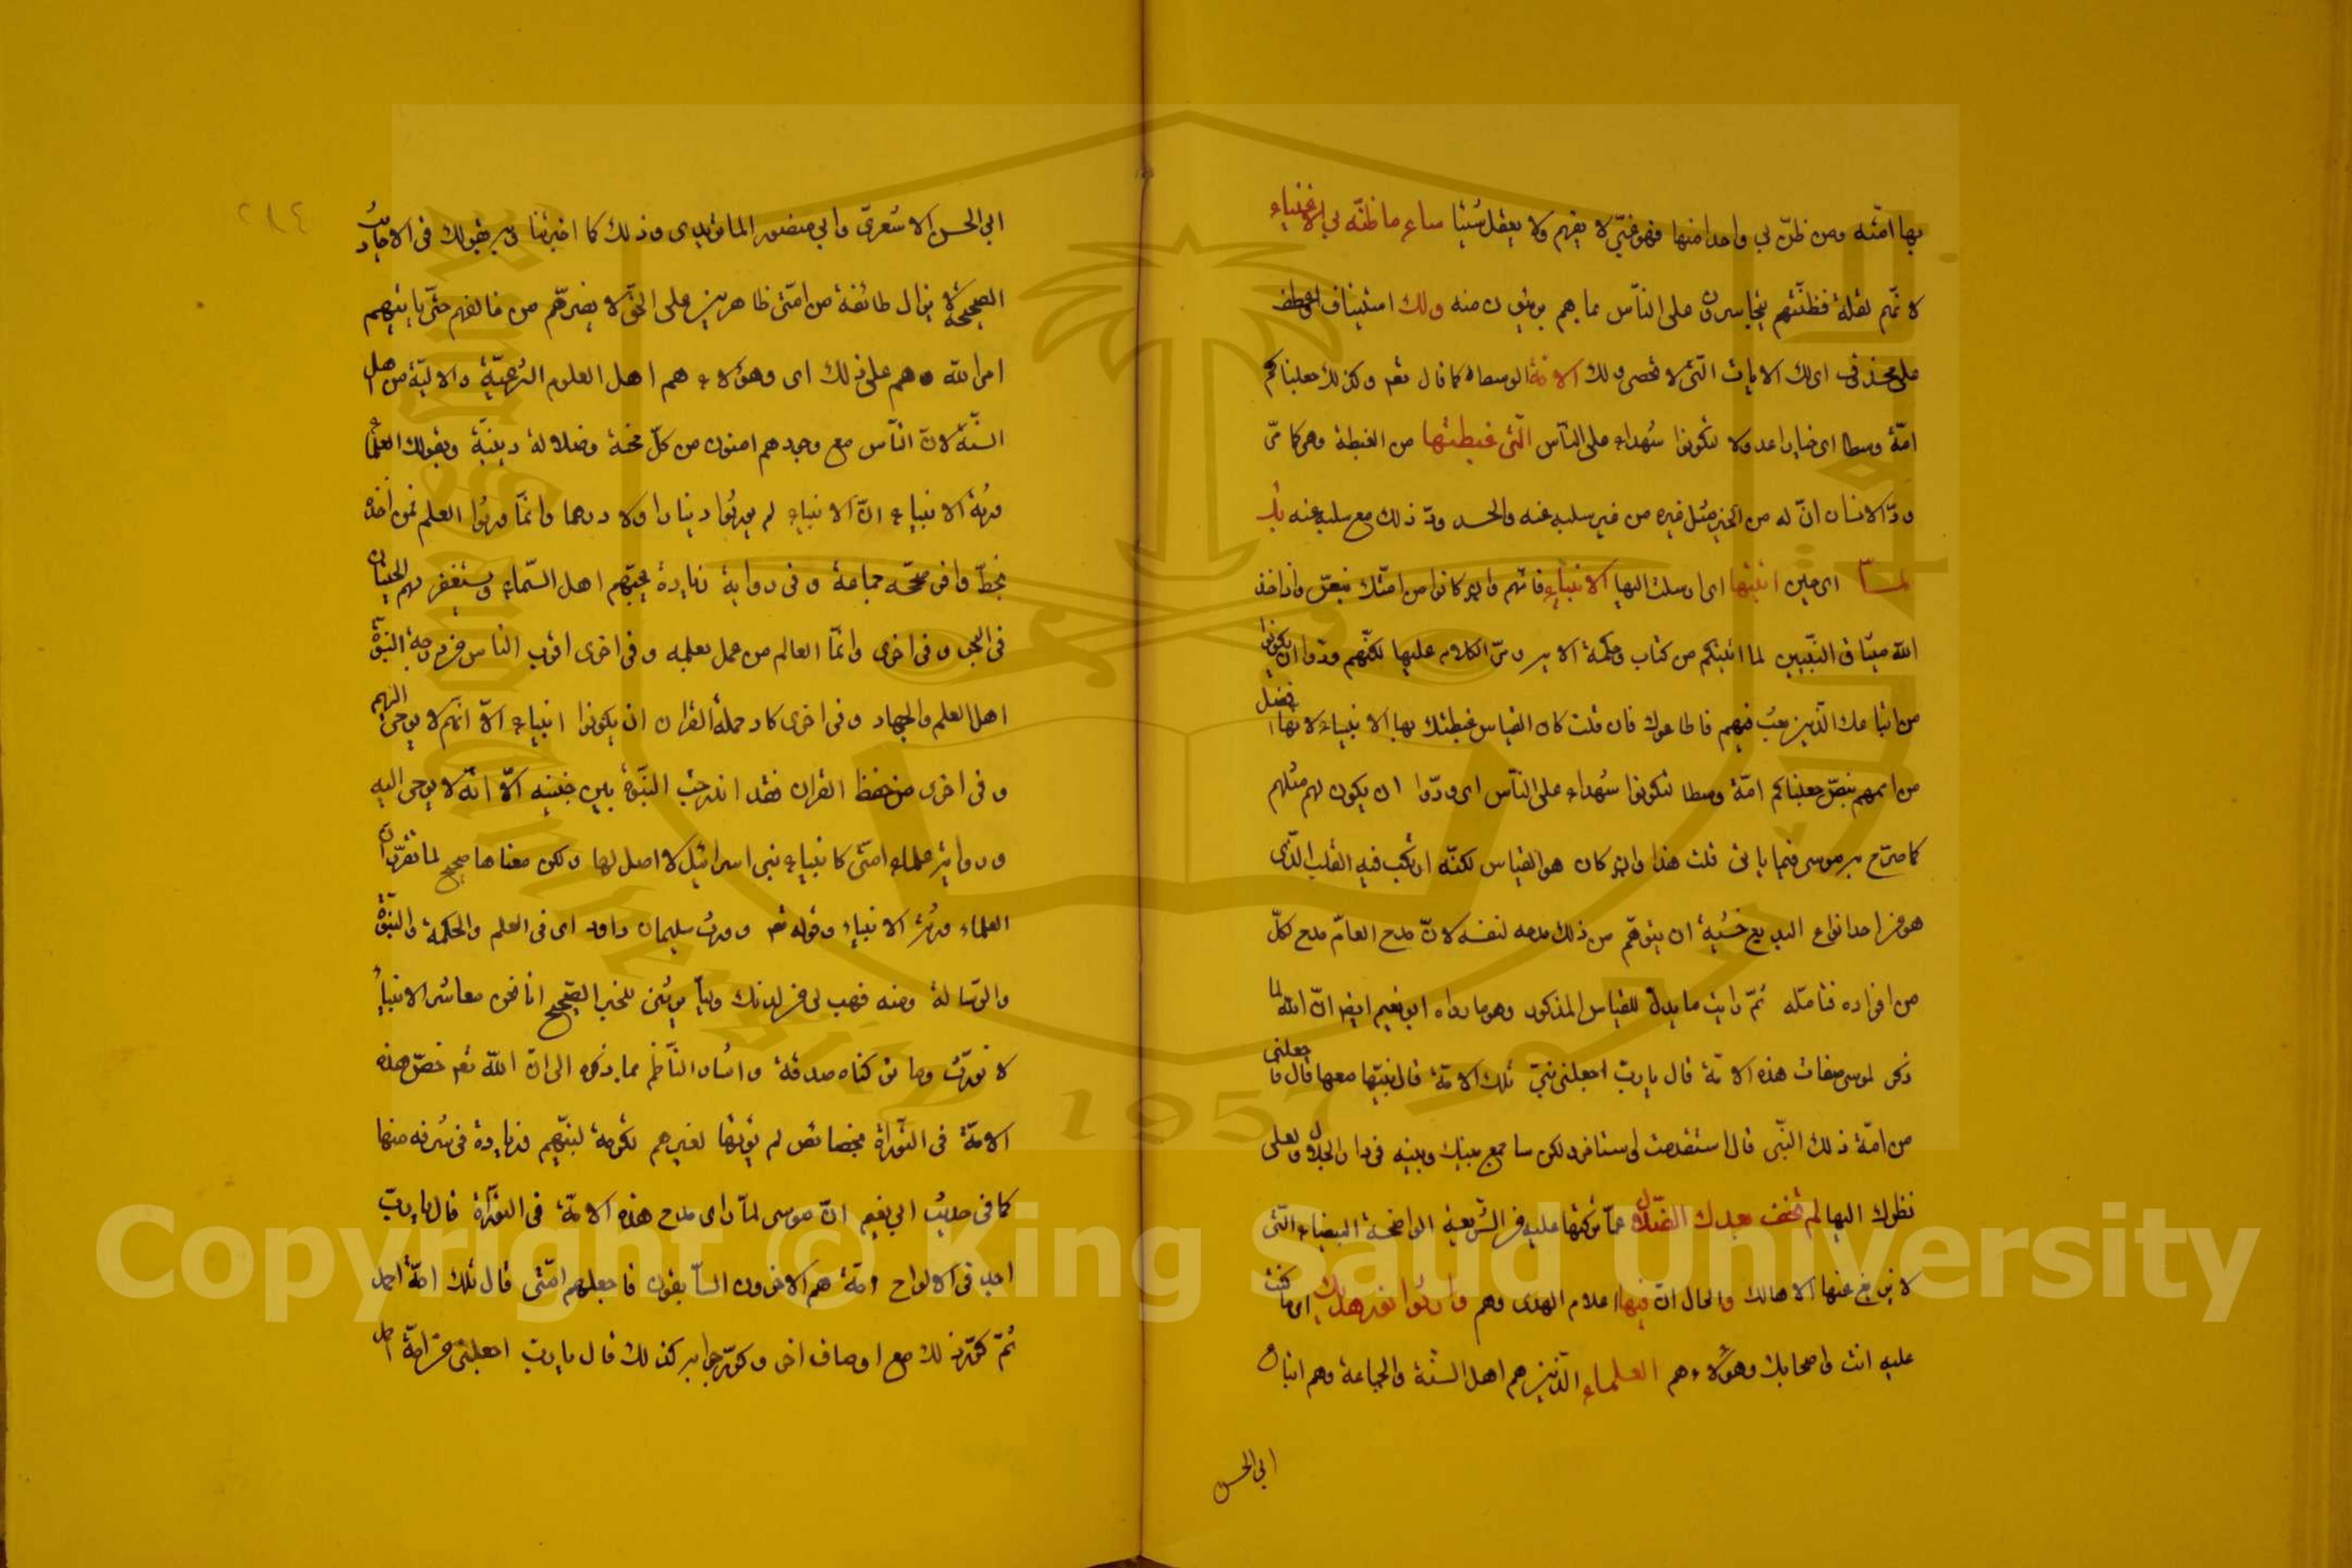 بها امّته ومن ظنّ بي واحدا منها فهو غبيّ لا يفهم ولا يعقل شيئا ساء ما ظنّه بي الاغبياء
لانّهم لقلة فطنتهم يتجاسرون على الناس بما هم بريئون منه ولك استيناف او عطف
على محذوف اى لك الايات التى لا تحصى ولك الامّة الوسطاء كما قال تعر وكذلك جعلناكم
امّة وسطا اى خيارا عدولا لتكونوا شهداء على النّاس الّتى غبطتها من الغبطة وهى كما مرّ
ودّ الانسان انّ له من الخير مثل غيره من غير سلبه عنه والحسد ودّ ذلك مع سلبه عنه بك
لمّا اى حين اتيتها اى ارسلت اليها الانبياء فانّهم وان كانوا من امّتك بنصّ واذ اخذ
الله ميثاق النّبيين لما اتيتكم من كتاب وحكمة الاية ومرّ الكلام عليها لكنّهم ودّوا ان يكونوا
من اتباعك الّذين بعثت فيهم فاطاعوك فان قلت كان القياس غبطتك بها الانبياء لانها افضل
من اممهم بنصّ جعلناكم امّة وسطا لتكونوا شهداء على النّاس اى ودّوا ان يكون لهم مثلهم
كما صرّح به موسى فيما ياتى قلت هذا وان كان هو القياس لكنّه ارتكب فيه القلب الّذى
هو من احد انواع البديع خشية ان يتوهّم من ذلك مدحه لنفسه لانّ مدح العامّ مدح لكلّ
من افراده فتامّله ثمّ رايت ما يدلّ للقياس المذكور وهو ما رواه ابو نعيم ايضا انّ الله لما
ذكر لموسى صفات هذه الامّة قال يا ربّ اجعلنى نبيّ تلك الامّة قال نبيّها منها قال فاجعلنى
من امّة ذلك النّبى قال استقدمت واستاخر ولكن ساجمع بينك وبينه فى دار الجلال ولعلى
نظرك اليها لم تخف بعدك الضّلال عمّا تركتها عليه من الشّريعة الواضحة البيضاء الّتى
لا يزيغ عنها الا هالك والحال انّ فيها اعلام الهدى وهم وارثوا نور هديك اى ما كنت
عليه انت واصحابك وهؤلاء هم العلماء الّذين هم اهل السنّة والجماعة وهم اتباع
ابى الحسن
٢٨٤
ابى الحسن الاشعرىّ وابى منصور الماتريدى وذلك كما اخبرتنا به بقولك فى الاحاديث
الصحيحة لا يزال طائفة من امّتى ظاهرين على الحقّ لا يضرّهم من خالفهم حتّى ياتيهم
امر الله وهم على ذلك اى وهؤلاء هم اهل العلوم الشرعيّة والاليّة من اهل
السنّة لانّ النّاس مع وجودهم امنون من كلّ محنة وضلالة دينيّة وبقولك العلماء
ورثة الانبياء انّ الانبياء لم يورثوا دينارا ولا درهما وانّما ورثوا العلم فمن اخذه
بحظّ وافر صحّحه جماعة وفى رواية زيادة يحبّهم اهل السّماء ويستغفر لهم الحيتان
فى البحر وفى اخرى وانّما العالم من عمل بعلمه وفى اخرى اقرب النّاس من درجة النبوّة
اهل العلم والجهاد وفى اخرى كاد حملة القران ان يكونوا انبياء الاّ انّهم لا يوحى اليهم
وفى اخرى من حفظ القران فقد اندرجت النبوّة بين جنبيه الاّ انّه لا يوحى اليه
ورواية علماء امّتى كانبياء بنى اسرائيل لا اصل لها ولكن معناها صحيح لما تقرّر انّ
العلماء ورثة الانبياء وقوله تعر وورث سليمان داود اى فى العلم والحكمة والنبوّة
والرّسالة ومنه فهب لى من لدنك وليّا يرثنى للخبر الصّحيح انا نحن معاشر الانبياء
لا نورث وما تركناه صدقة واشار النّاظم بما ذكره الى انّ الله تعر خصّ هذه
الامّة فى التّوراة بخصائص لم يؤتها لغيرهم تكرمة لنبيّهم وزيادة فى شرفه منها
كما فى حديث ابى نعيم انّ موسى لمّا راى مدح هذه الامّة فى التّوراة قال يا ربّ
اجد فى الالواح امّة هم الاخرون السّابقون فاجعلهم امّتى قال تلك امّة احمد
ثمّ كرّر ذلك مع اوصاف اخر وكرّر جوابه كذلك قال يا ربّ اجعلنى من امّة احمد
Copyright © King Saud University
1957